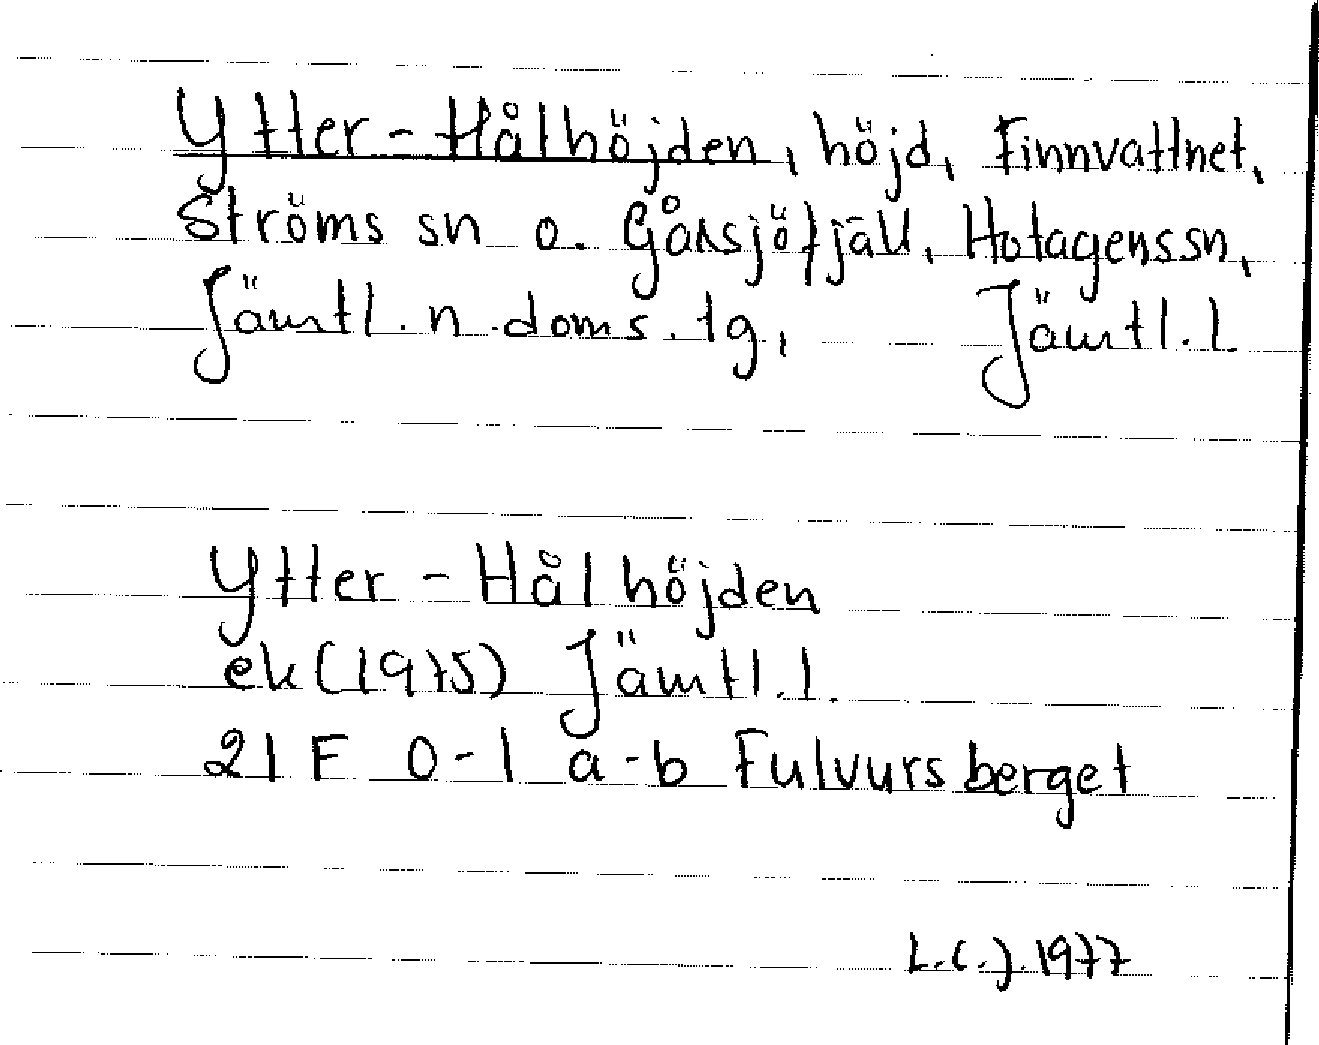 Ytter-Hålhöjden, höjd, Finnvattnet,
Ströms sn o. Gåxsjöfjäll, Hotagens sn,
Jämtl. n. doms. tg, Jämtl. l.
Ytter-Hålhöjden
ek (1975) Jämtl. l.
21 F 0-1 a-b Fulvursberget
L.C.J. 1977